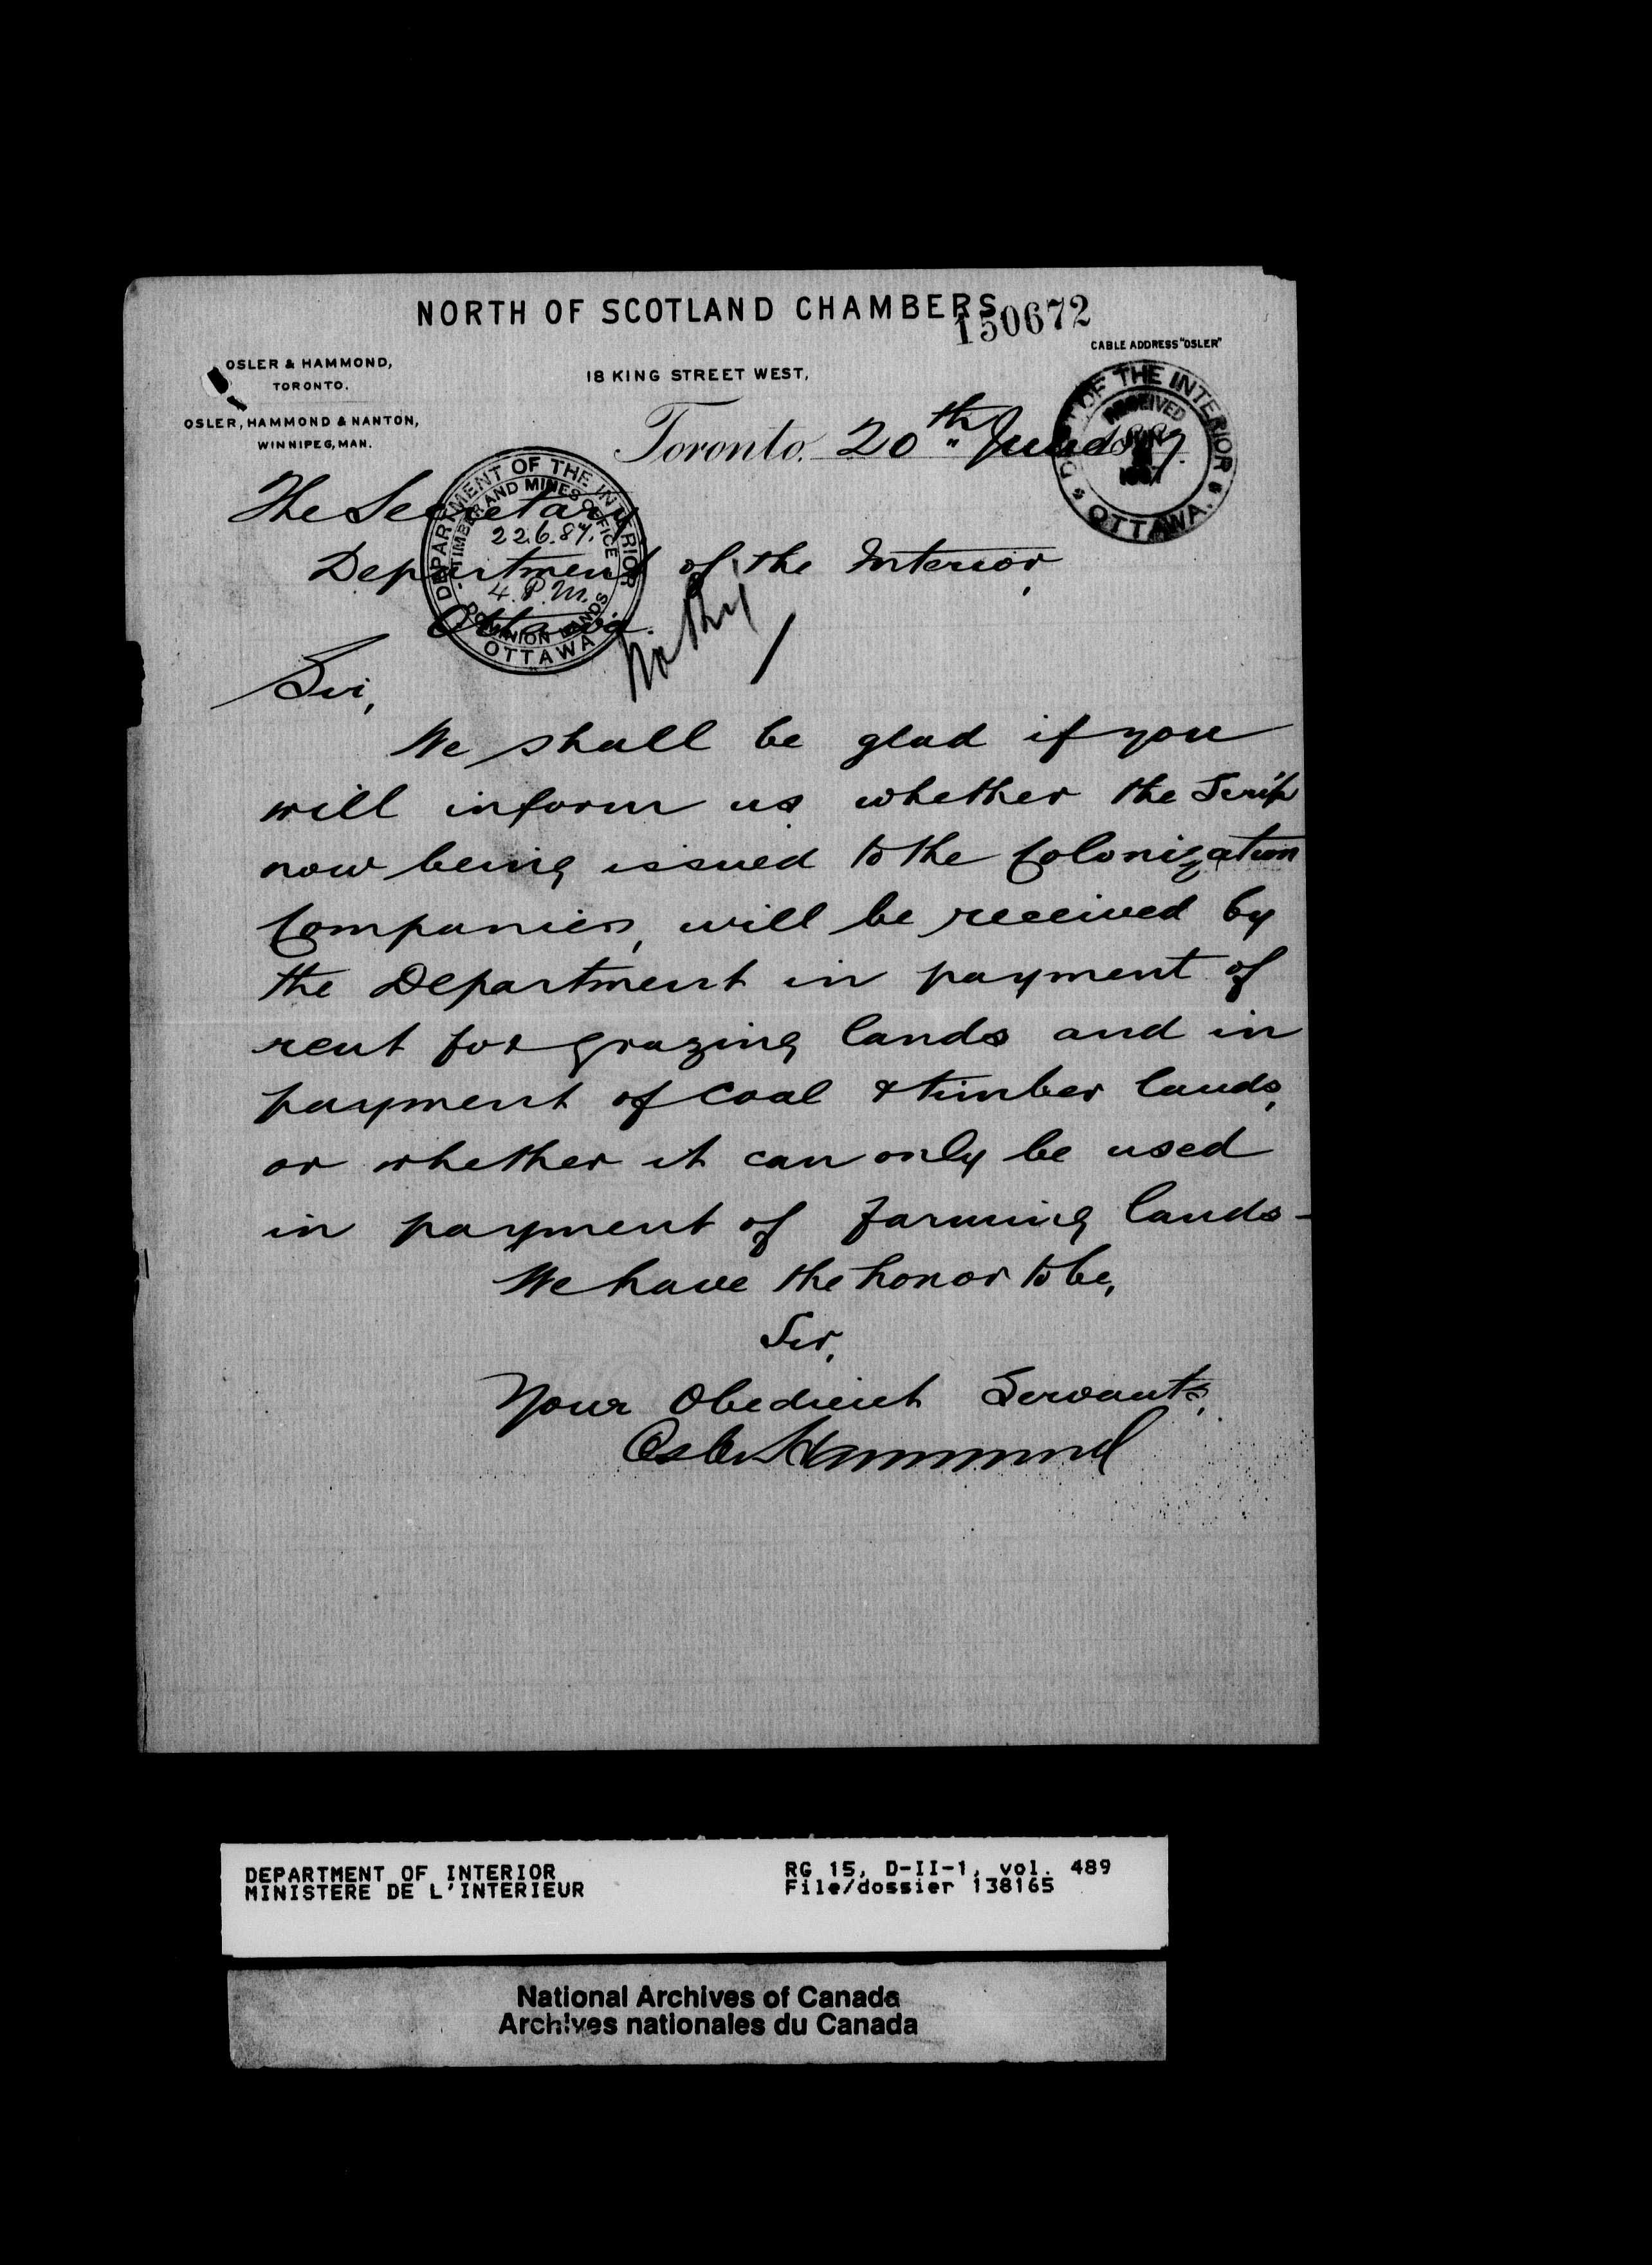 NORTH OF SCOTLAND CHAMBERS
150672
CABLE ADDRESS "OSLER"
OSLER & HAMMOND,
TORONTO.
18 KING STREET WEST,
OSLER, HAMMOND & NANTON,
WINNIPEG, MAN.
Toronto. 20th June 1887.
DEPT OF THE INTERIOR
RECEIVED
1887
OTTAWA.
The Secretary
DEPARTMENT OF THE INTERIOR
TIMBER AND MINES OFFICE
22.6.87.
4. P.M.
DOMINION LANDS
OTTAWA
Department of the Interior,
Ottawa.
Sir,
We shall be glad if you
will inform us whether the Scrip
now being issued to the Colonization
Companies, will be received by
the Department in payment of
rent for grazing lands and in
payment of Coal & timber lands,
or whether it can only be used
in payment of farming lands-
We have the honor to be,
Sir,
Your Obedient Servants,
Osler & Hammond
DEPARTMENT OF INTERIOR
MINISTERE DE L'INTERIEUR
RG 15, D-II-1, vol. 489
File/dossier 138165
National Archives of Canada
Archives nationales du Canada